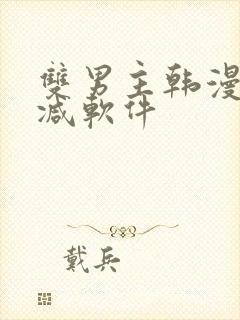 雙男主韩漫
减軟件
戴兵